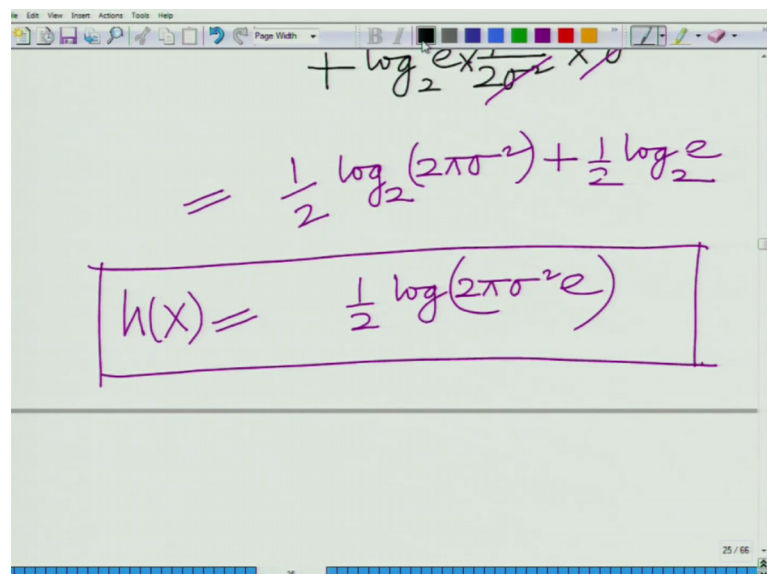 Edit View Insert Actions Tools Help
Page Width B I
+ log₂ e × 1/2σ² × σ²
= 1/2 log₂(2πσ²) + 1/2 log₂ e
h(X) = 1/2 log(2πσ²e)
25 / 66